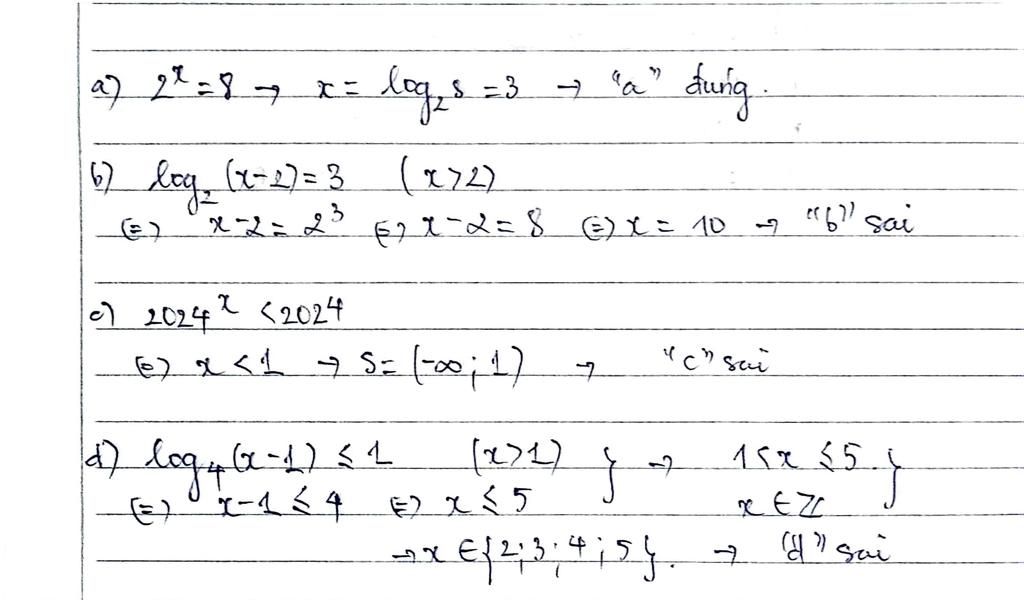 a) 2^x = 8 → x = log₂8 = 3 → "a" đúng.
b) log₂(x-2) = 3 (x>2)
(=) x-2 = 2³ (=) x-2 = 8 (=) x = 10 → "b" sai
c) 2024^x < 2024
(=) x < 1 → S = (-∞; 1) → "c" sai
d) log₄(x-1) ≤ 1 (x>1) } → 1<x ≤5 }
(=) x-1 ≤ 4 (=) x ≤ 5 x ∈ Z
→ x ∈ {2; 3; 4; 5}. → "d" sai